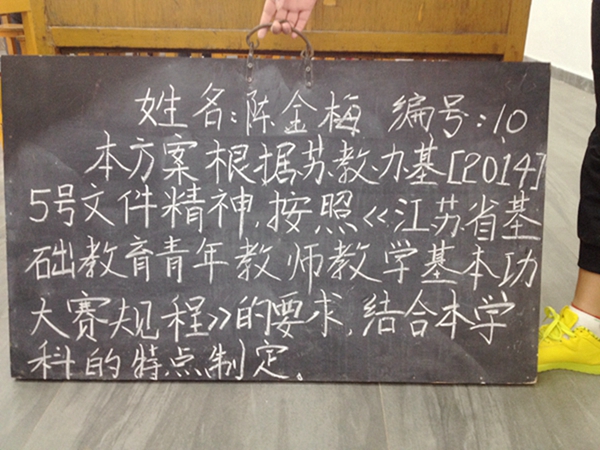 姓名:陈金梅 编号:10
本方案根据苏教办基[2014]
5号文件精神,按照《江苏省基
础教育青年教师教学基本功
大赛规程》的要求,结合本学
科的特点制定。